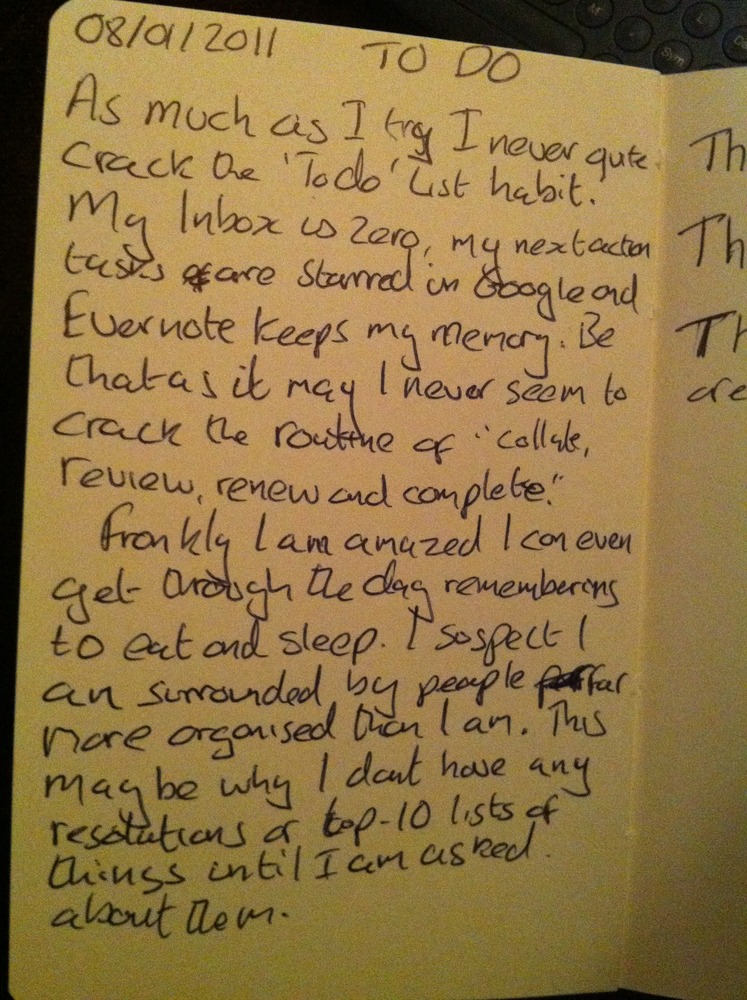 08/01/2011 TO DO
As much as I try I never quite
crack the 'Todo' List habit.
My Inbox is Zero, my next action
tasks are starred in Google and
Evernote keeps my memory. Be
that as it may I never seem to
crack the routine of "collate,
review, renew and complete."
Frankly I am amazed I can even
get through the day remembering
to eat and sleep. I suspect I
am surrounded by people far
more organised than I am. This
may be why I dont have any
resolutions or top-10 lists of
things until I am asked.
about them.
Th
Th
Th
are